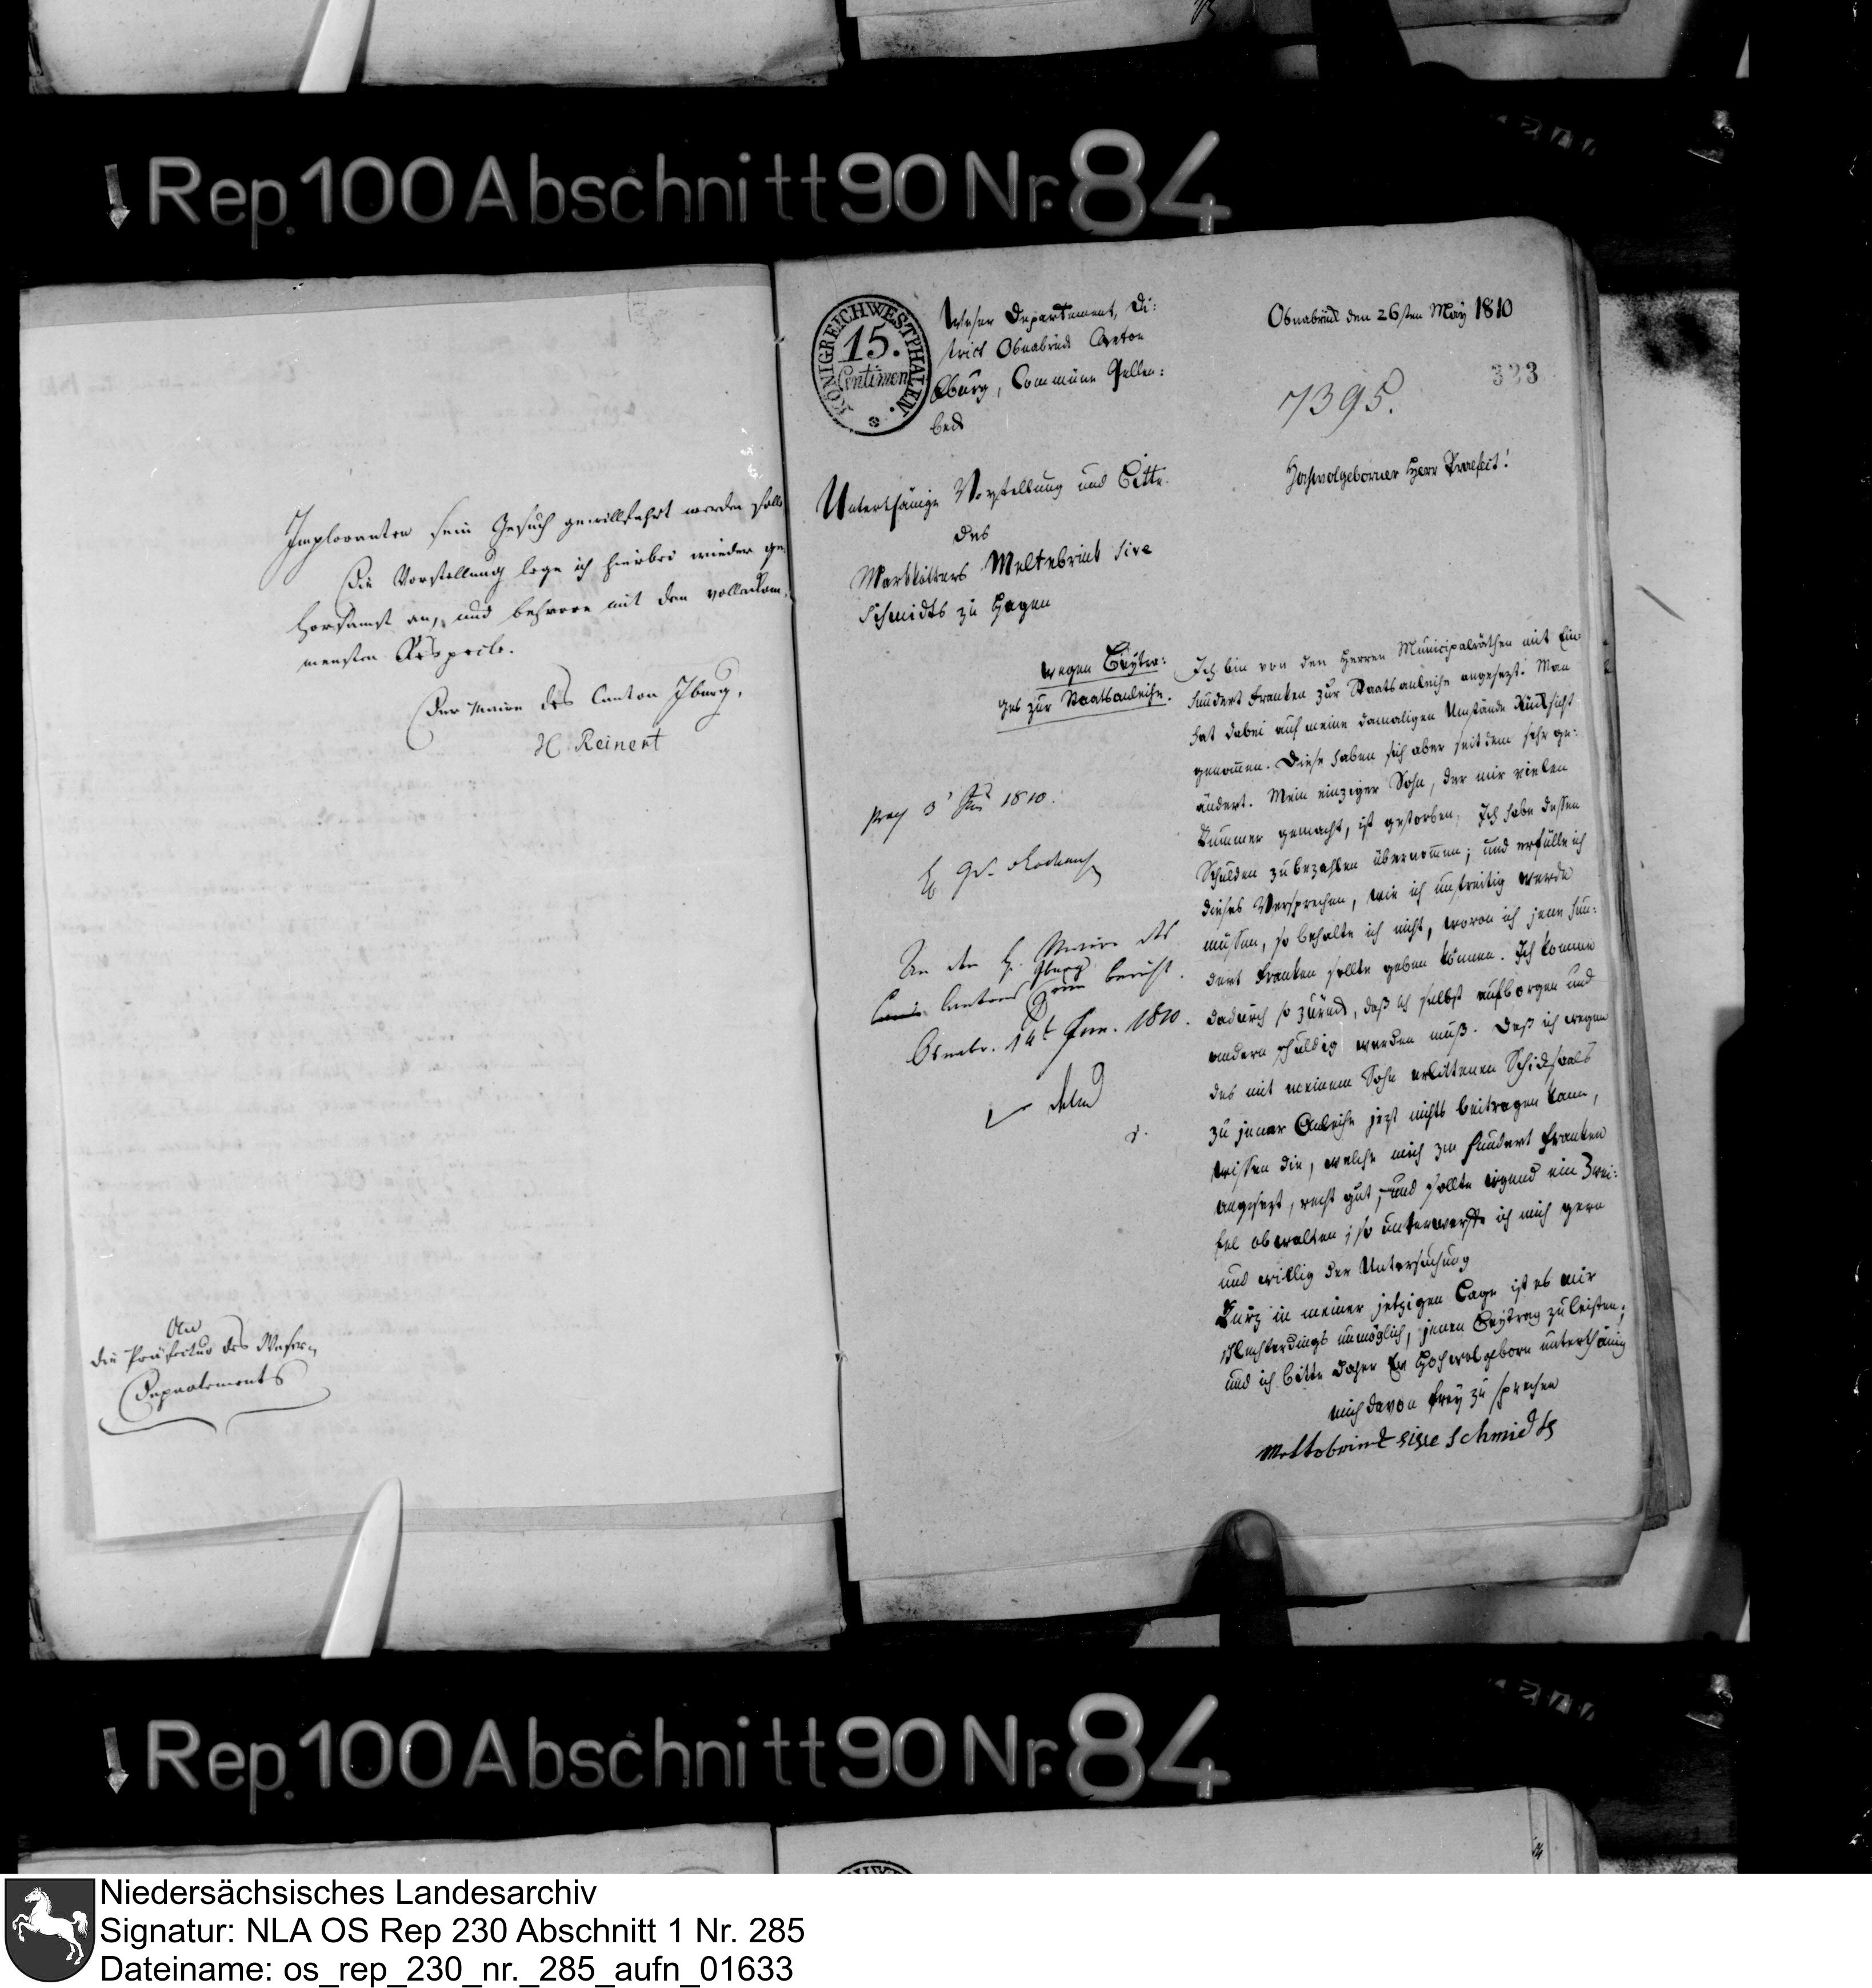 Rep. 100 Abschnitt 90 Nr. 84
Imploranten sein Gesuch gewillfahrt werden solle
Die Vorstellung lege ich hierbei wieder ge-
horsamst an, und beharre mit dem vollenkom-
mensten Respecte.
Der Maire des Canton Iburg.
H. Reinert
An
die Präfectur des Weser-
Departements
KÖNIGREICH WESTPHALEN.
15.
Centimen
Weser Departement, Di:
strict Osnabrück Canton
Iburg, Commüne Gellen:
beck
Osnabrück den 26sten May 1810
323
7395.
Unterthänige Vorstellung und Bitte
des
Markkötters Meltebrink sive
Schmidts zu Hagen
wegen Beytra:
ges zur Staatsanleihe.
Hochwolgeborner Herr Praefect!
Ich bin von den Herren Municipalräthen mit Ein
hundert Franken zur Staatsanleihe angesezt. Man
hat dabei auf meine damaligen Umstände Rücksicht
genommen. Diese haben sich aber seit dem sehr ge:
ändert. Mein einziger Sohn, der mir vielen
Kummer gemacht, ist gestorben, Ich habe dessen
Schulden zu bezahlen übernommen; und erfülle ich
dieses Versprechen, wie ich unstreitig werde
müssen, so behalte ich nicht, wovon ich jene hun:
dert Franken sollte geben können. Ich komme
dadurch so zurück, daß ich selbst aufborgen und
andern schuldig werden muß. Daß ich wegen
des mit meinem Sohn erlittenen Schicksaals
zu jener Anleihe jezt nichts beitragen kann,
wissen die, welche mich zu hundert Franken
angesezt, recht gut, und sollte irgend ein Zwei:
fel obwalten; so unterwerffe ich mich gern
und willig der Untersuchung
Kurz in meiner jetzigen Lage ist es mir
schlechterdings unmöglich, jenen Beytrag zu leisten;
und ich bitte daher Ew Hochwolgeborn unterthänig
mich davon frey zu sprechen
Meltebrink sive Schmidts
3 Jun 1810.
An den H. Maire des
Cantons Iburg zum Bericht.
Osnabr. 14t Jun. 1810.
Rep. 100 Abschnitt 90 Nr. 84
Niedersächsisches Landesarchiv
Signatur: NLA OS Rep 230 Abschnitt 1 Nr. 285
Dateiname: os_rep_230_nr._285_aufn_01633